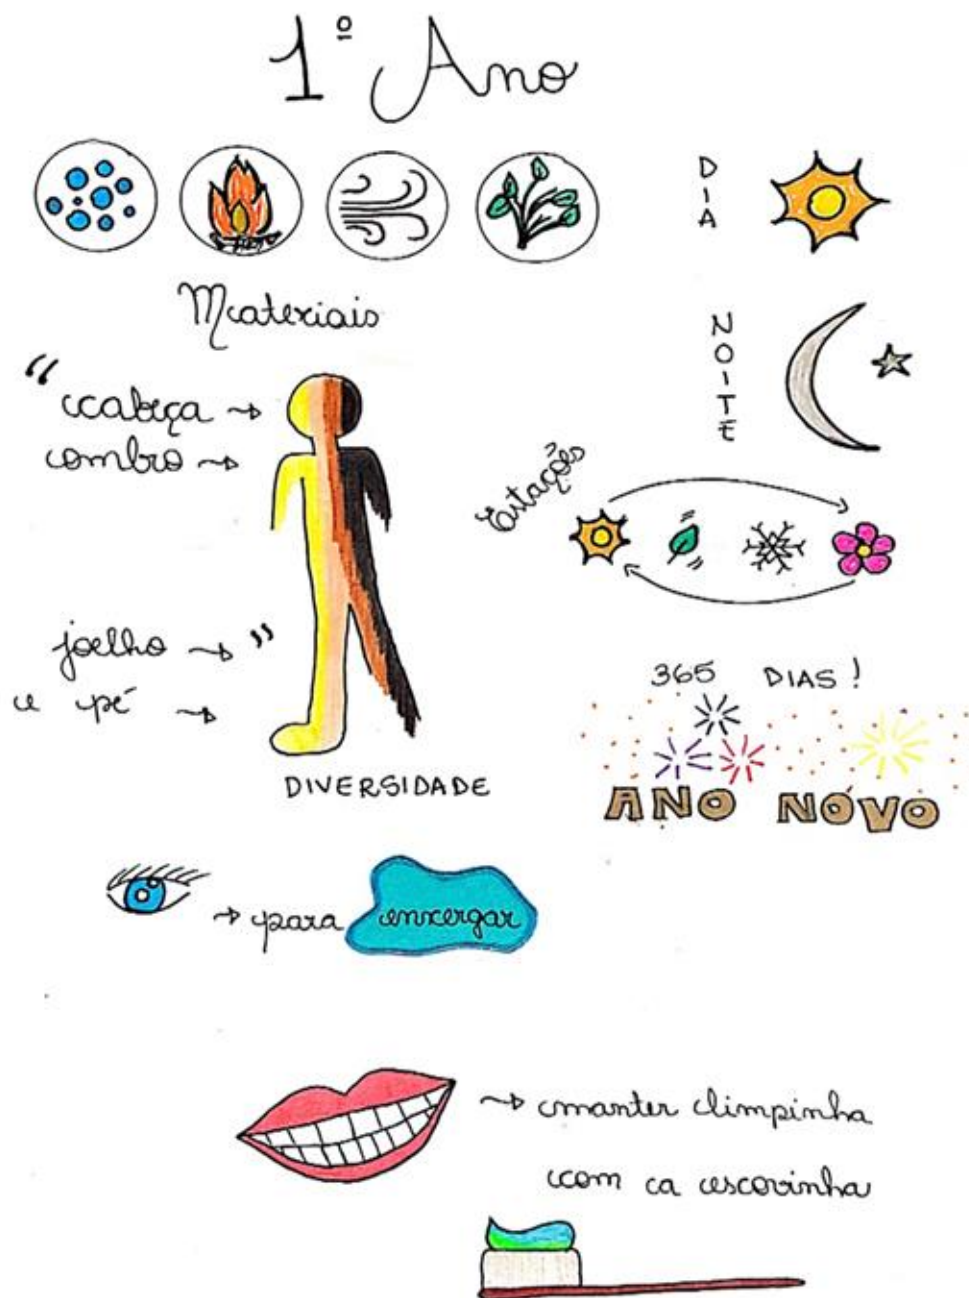 1º Ano
DIA
Materiais
NOITE
"cabeça
ombro
Estações
joelho"
e pé
365 DIAS!
ANO NOVO
DIVERSIDADE
para enxergar
manter limpinha
com a escovinha